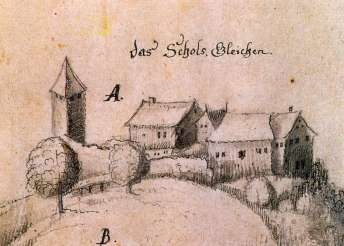 das Schols. Gleichen.
A.
B.